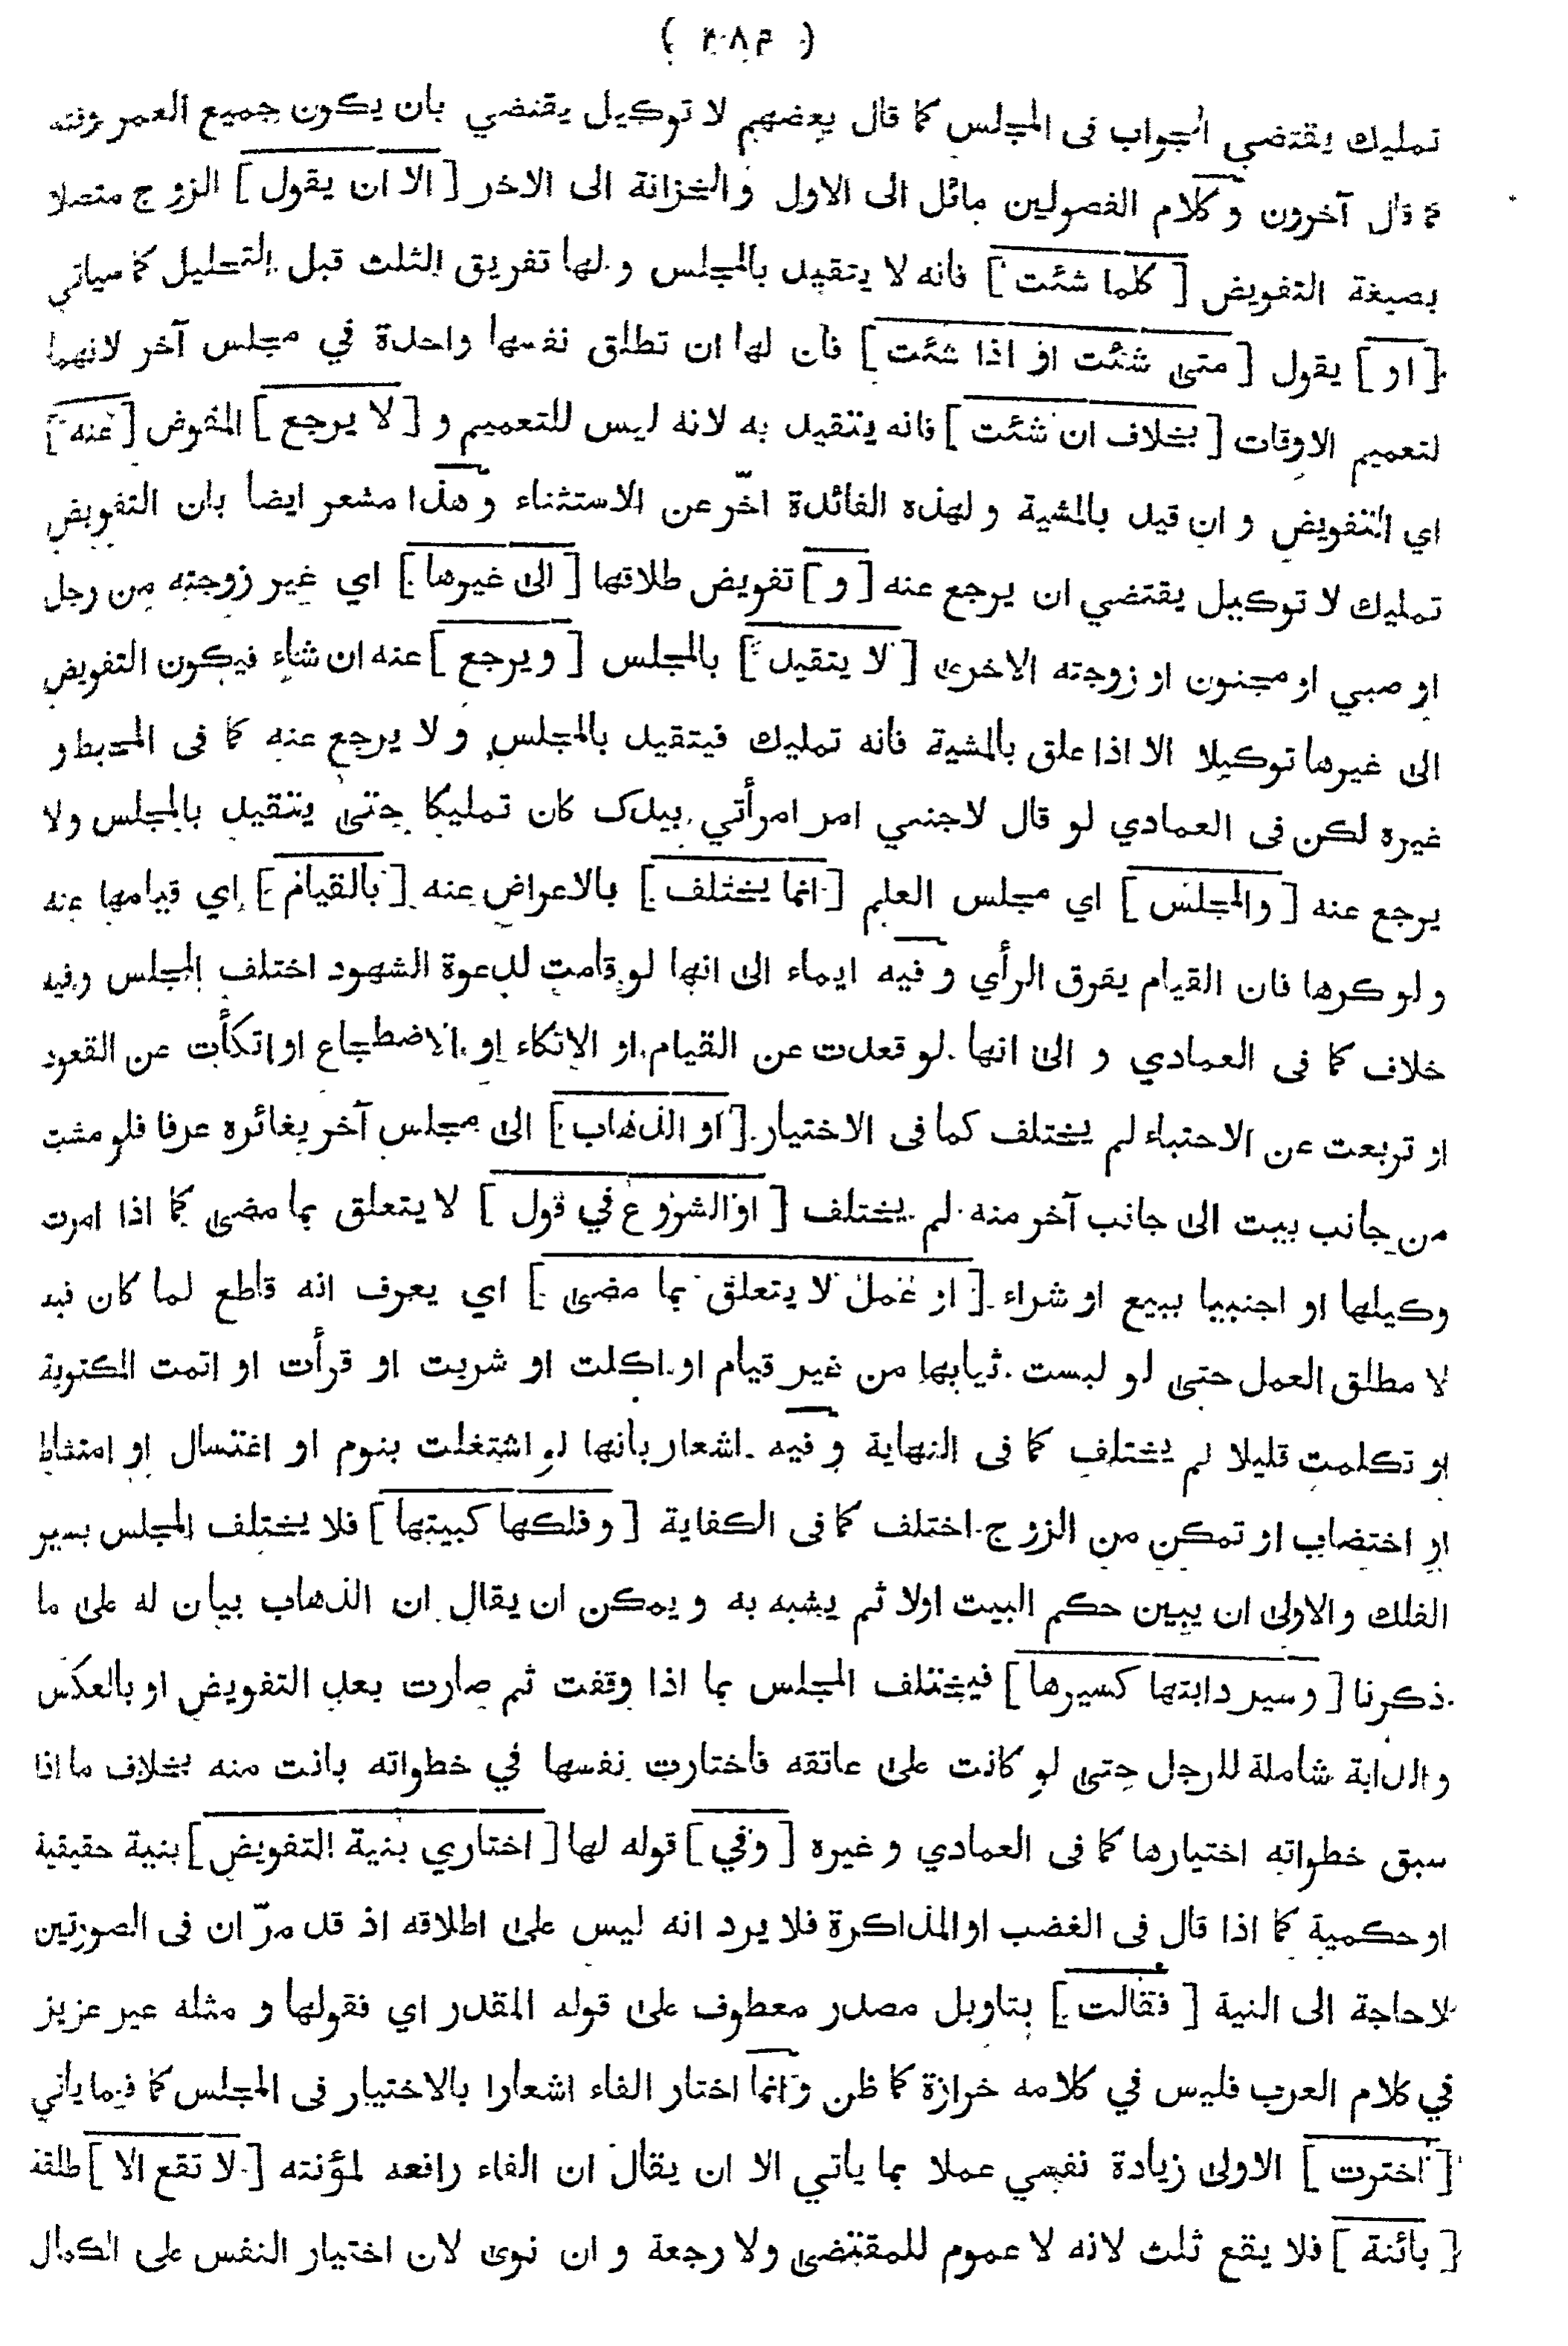 تمليك يقتضي الجواب فى المجلس كما قال بعضهم لا توكيل يقتضي بان يكون جميع العمر وقته
كما قال آخرون و كلام الفصولين مائل الى الاول والخزانة الى الاخر [ الا ان يقول ] الزوج متصلا
بصيغة التفويض [ كلما شئت ] فانه لا يتقيد بالمجلس و لها تفريق الثلث قبل التحليل كما سياتي
[ او ] يقول [ متى شئت او اذا شئت ] فان لها ان تطلق نفسها واحدة في مجلس آخر لانهما
لتعميم الاوقات [ بخلاف ان شئت ] فانه يتقيد به لانه ليس للتعميم و [ لا يرجع ] المفوض [ عنه ]
اي التفويض و ان قيد بالمشية و لهذه الفائدة اخّر عن الاستثناء و هذا مشعر ايضا بان التفويض
تمليك لا توكيل يقتضي ان يرجع عنه [ و ] تفويض طلاقها [ الى غيرها ] اي غير زوجته من رجل
او صبي او مجنون او زوجته الاخرى [ لا يتقيد ] بالمجلس [ و يرجع ] عنه ان شاء فيكون التفويض
الى غيرها توكيلا الا اذا علق بالمشية فانه تمليك فيتقيد بالمجلس و لا يرجع عنه كما فى المحيط و
غيره لكن فى العمادي لو قال لاجنبي امر امرأتي بيدك كان تمليكا حتى يتقيد بالمجلس ولا
يرجع عنه [ والمجلس ] اي مجلس العلم [ انما يختلف ] بالاعراض عنه [ بالقيام ] اي قيامها عنه
و لو كرها فان القيام يفرق الرأي و فيه ايماء الى انها لو قامت لدعوة الشهود اختلف المجلس وفيه
خلاف كما فى العمادي و الى انها لو قعدت عن القيام او الاتكاء او الاضطجاع او اتكأت عن القعود
او تربعت عن الاحتباء لم يختلف كما فى الاختيار [ او الذهاب ] الى مجلس آخر يغائره عرفا فلو مشت
من جانب بيت الى جانب آخر منه لم يختلف [ او الشروع في قول ] لا يتعلق بما مضى كما اذا امرت
وكيلها او اجنبيا ببيع او شراء [ او عمل لا يتعلق بما مضى ] اي يعرف انه قاطع لما كان فيه
لا مطلق العمل حتى لو لبست ثيابها من غير قيام او اكلت او شربت او قرأت او اتمت المكتوبة
او تكلمت قليلا لم يختلف كما فى النهاية و فيه اشعار بانها لو اشتغلت بنوم او اغتسال او امتشاط
او اختضاب او تمكين من الزوج اختلف كما فى الكفاية [ و فلكها كبيتها ] فلا يختلف المجلس بسير
الفلك والاولى ان يبين حكم البيت اولا ثم يشبه به و يمكن ان يقال ان الذهاب بيان له على ما
ذكرنا [ و سير دابتها كسيرها ] فيختلف المجلس بما اذا وقفت ثم صارت بعد التفويض او بالعكس
والدابة شاملة للرجل حتى لو كانت على عاتقه فاختارت نفسها في خطواته بانت منه بخلاف ما اذا
سبق خطواته اختيارها كما فى العمادي و غيره [ و في ] قوله لها [ اختاري بنية التفويض ] بنية حقيقية
او حكمية كما اذا قال فى الغضب او المذاكرة فلا يرد انه ليس على اطلاقه اذ قد مرّ ان فى الصورتين
لا حاجة الى النية [ فقالت ] بتاويل مصدر معطوف على قوله المقدر اي فقولها و مثله غير عزيز
في كلام العرب فليس في كلامه خرازة كما ظن و انما اختار الفاء اشعارا بالاختيار فى المجلس كما فيما ياتي
[ اخترت ] الاولى زيادة نفسي عملا بما يأتي الا ان يقال ان الفاء رافعه لمؤنته [ لا تقع الا ] طلقة
[ بائنة ] فلا يقع ثلث لانه لا عموم للمقتضى ولا رجعة و ان نوى لان اختيار النفس على الكمال